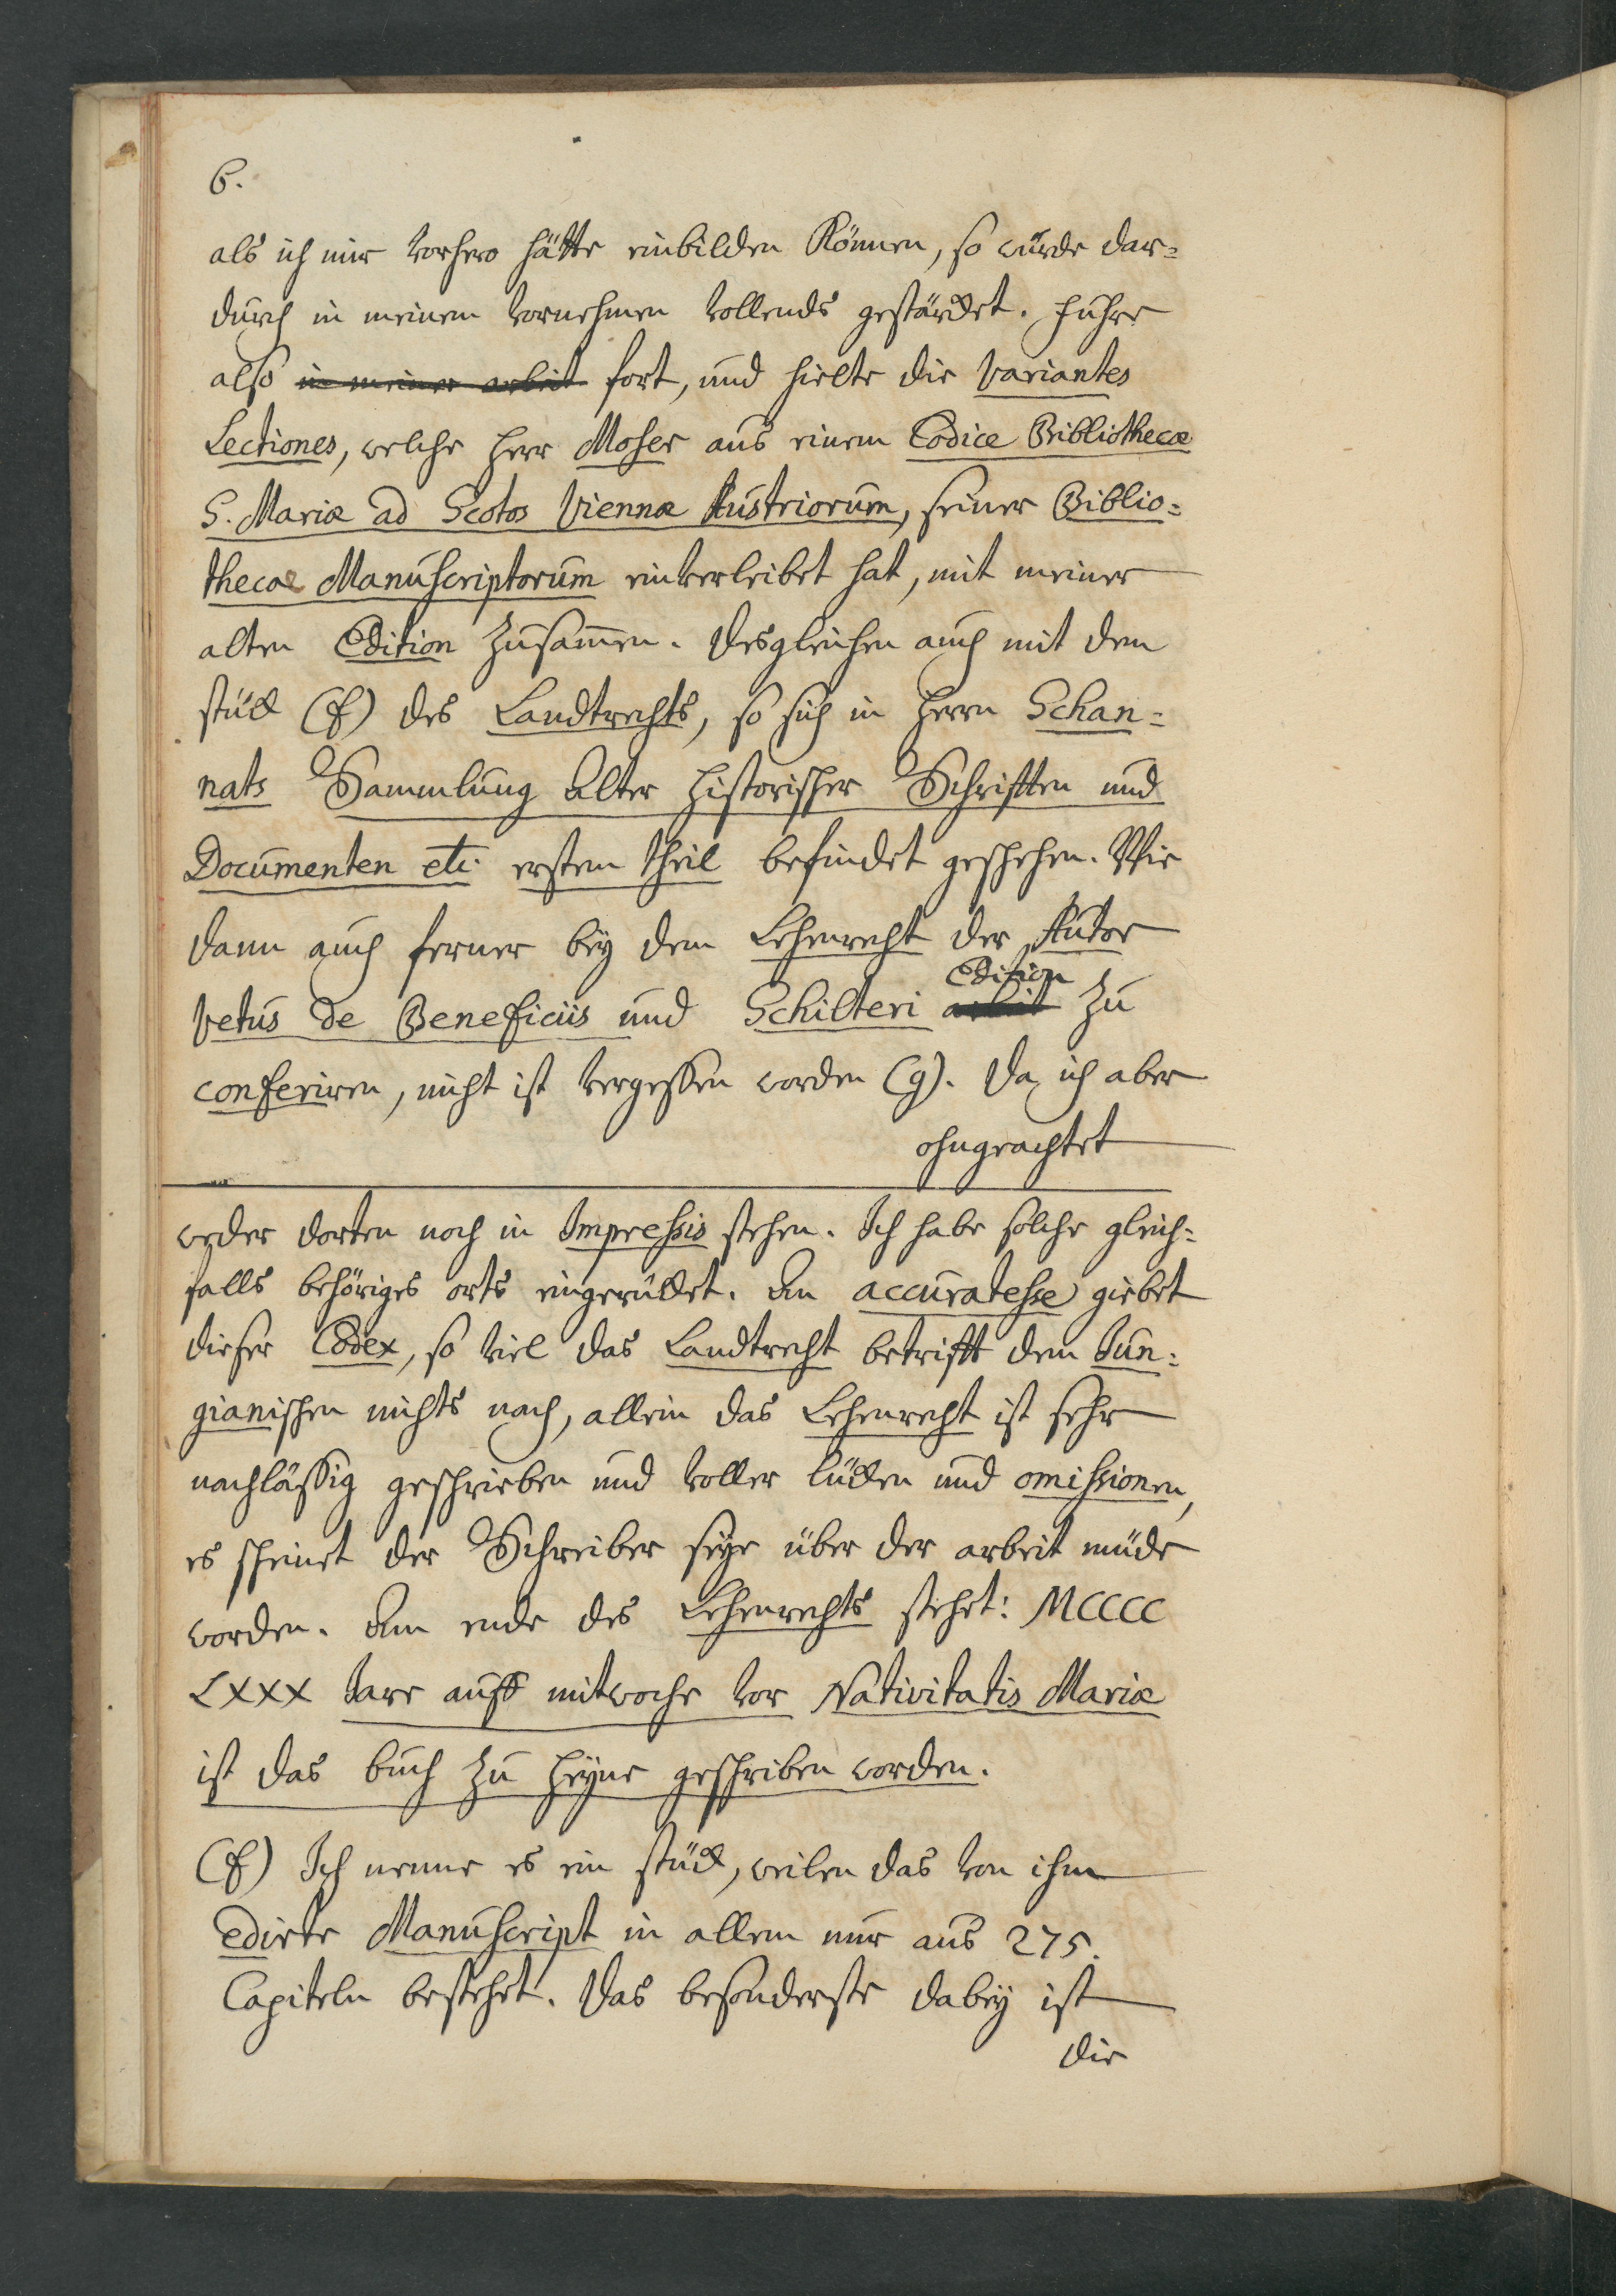 6.
als ich mir vorhero hätte einbilden können, so würde dar=
durch in meinem vornehmen vollends gestärcket. Fuhre
also in meiner arbeit fort, und hielte die Variantes
Lectiones, welche Herr Moser aus einem Codice Bibliothecæ
S. Mariæ ad Scotos Viennæ Austriorum, seiner Biblio=
thecae Manuscriptorum einverleibet hat, mit meiner
alten Edition zusam̄en. Desgleichen auch mit dem
stück (f) des Landtrechts, so sich in Herrn Schan=
nats Sammlung alter Historischer Schrifften und
Documenten etc. ersten theil befindet geschehen. Wie
dann auch ferner bey dem Lehenrecht der Autor
Edition
Vetus de Beneficiis und Schilteri arbeit zu
conferiren, nicht ist vergessen worden (g). Da ich aber
ohngeachtet
weder dorten noch in Impressis stehen. Ich habe solche gleich=
falls behöriges orts eingerücket. An accuratesse giebet
dieser Codex, so viel das Landtrecht betrifft dem Jun=
gianischen nichts nach, allein das Lehenrecht ist sehr
nachlässig geschrieben und voller lücken und omissionen,
es scheinet der Schreiber seye über der arbeit müde
worden. Am ende des Lehenrechts stehet: MCCCC
LXXX Jare auff mitwoche vor Nativitatis Mariæ
ist das buch zu Heyne geschriben worden.
(f) Ich nenne es ein stück, weilen das von ihm
edirte Manuscript in allem nur aus 275.
Capiteln bestehet. Das besonderste dabey ist
die